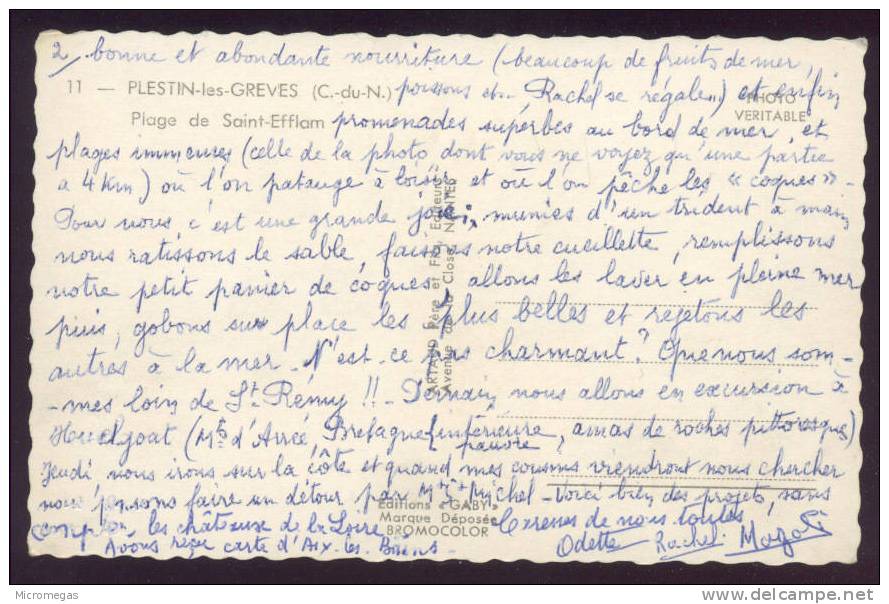 2/ bonne et abondante nourriture (beaucoup de fruits de mer,
11 — PLESTIN-les-GREVES (C.-du-N.) poissons etc. Rachel se régale) et enfin
PHOTO VERITABLE
Plage de Saint-Efflam promenades superbes au bord de mer, et
plages immenses (celle de la photo dont vous ne voyez qu'une partie
a 4 km) où l'on patauge à loisir et où l'on pêche les "coques".
Pour nous c'est une grande joie, munies d'un trident à main
nous ratissons le sable, faisons notre cueillette, remplissons
notre petit panier de coques, allons les laver en pleine mer
puis, gobons sur place les plus belles et rejetons les
autres à la mer. N'est-ce pas charmant? Que nous som-
-mes loin de St. Rémy!! - Demain, nous allons en excursion à
Huelgoat (Mts d'Arrée, Bretagne intérieure, pauvre, amas de roches pittoresques)
Jeudi, nous irons sur la côte et quand mes cousins viendront nous chercher
nous pensons faire un détour par Mt St Michel - Voici bien des projets, sans
compter les châteaux de la Loire
Avons reçu carte d'Aix-les-Bains -
de nous toutes
Odette Rachel Magali
ARTAUD Père et Fils, Editeurs
Avenue de la Close NANTES
Editions "GABY"
Marque Déposée
BROMOCOLOR
Micromegas
www.delcampe.net